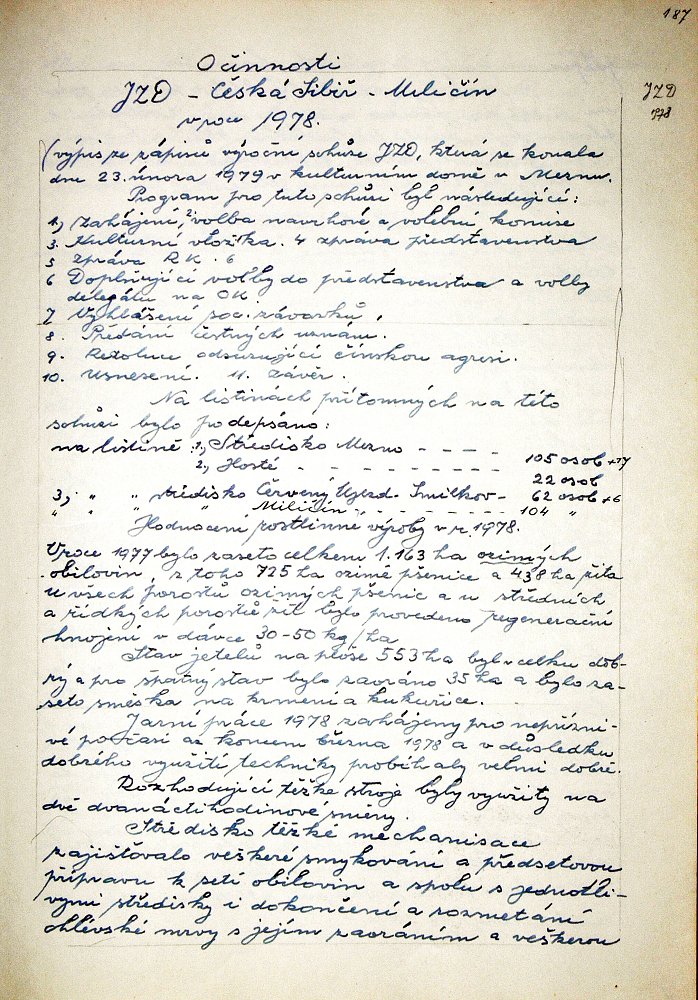 187
O činnosti
JZD - Česká Sibiř - Miličín
v roce 1978.
JZD
1978
(výpis ze zápisů výroční schůze JZD, která se konala
dne 23. února 1979 v kulturním domě v Meznu.
Program pro tuto schůzi byl následující:
1, Zahájení, 2, volba návrhové a volební komise
3. Kulturní vložka. 4 zpráva představenstva
5 zpráva R K . 6
6 Doplňující volby do představenstva a volby
delegátu na OK.
7 Vyhlášení soc. závazků,
8. Předání čestných uznám.
9. Rezoluce odsuzující čínskou agresi.
10. Usnesení. 11. závěr.
Na listinách přítomných na této
schůzi bylo podepsáno:
na listině 1, Středisko Mezno - - - - 105 osob +17
2, Hosté - - - - - - - - - 22 osob
3, " " středisko Červený Újezd - Smilkov - 62 osob +6
" " " Miličín - - - - - 104 "
Hodnocení rostlinné výroby v r. 1978.
V roce 1977 bylo zaseto celkem 1.163 ha ozimých
obilovin, z toho 725 ha ozimé pšenice a 438 ha žita
U všech porostů ozimých pšenic a u středních
a řídkých porostů žit bylo provedeno regenerační
hnojení v dávce 30-50 kg/ha
Stav jetelů na ploše 553 ha byl v celku dob-
rý a pro špatný stav bylo zaoráno 35 ha a bylo za-
seto směska na krmení a kukuřice.
Jarní práce 1978 zahájeny pro nepřízni-
vé počasí až koncem března 1978 a v důsledku
dobrého využití techniky probíhaly velmi dobře.
Rozhodující těžké stroje byly využity na
dvě dvanáctihodinové směny.
Středisko těžké mechanisace
zajišťovalo veškeré smykování a předseťovou
přípravu k setí obilovin a spolu s jednotli-
vymi středisky i dokončení a rozmetání
chlévské mrvy s jejím zaoráním a veškerou